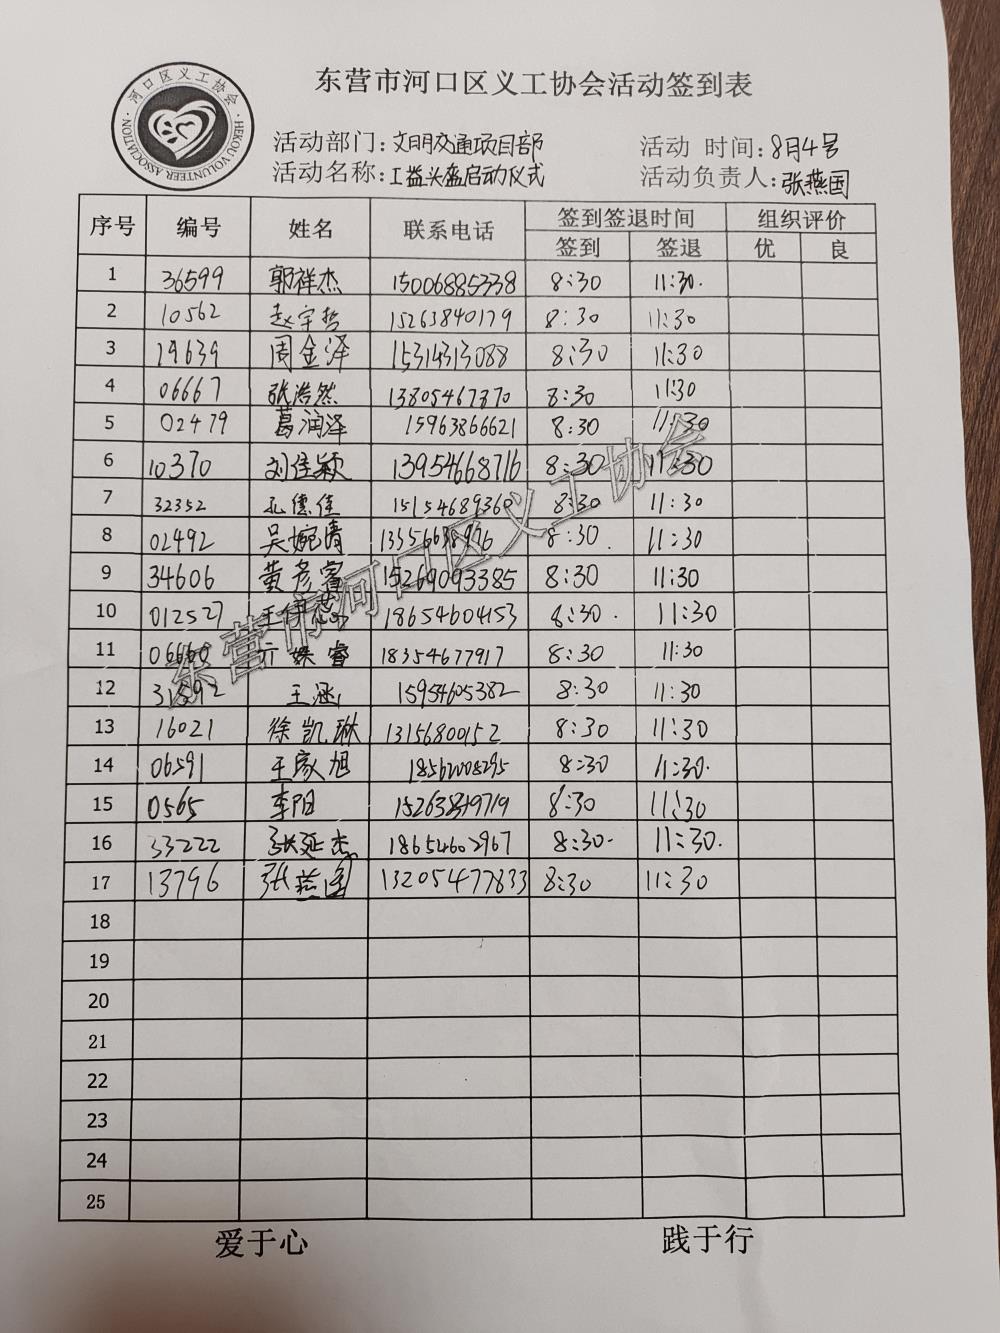 东营市河口区义工协会活动签到表
河口区义工协会
HEKOU VOLUNTEER ASSOCIATION
活动部门: 文明交通项目部 活动 时间: 8月4号
活动名称: 工益头盔启动仪式 活动负责人: 张燕国
序号 编号 姓名 联系电话 签到签退时间 组织评价
签到 签退 优 良
1 36599 郭祥杰 15006885338 8:30 11:30.
2 10562 赵宇哲 15263840179 8:30 11:30
3 19639 周金泽 15314313088 8:30 11:30
4 06667 张浩然 13805467370 8:30 11:30
5 02479 葛润泽 15963866621 8:30 11:30
6 10370 刘佳颖 13954668716 8:30 11:30
7 32352 孔德佳 15154689360 8:30 11:30
8 02492 吴婉清 8:30. 11:30
9 34606 黄彦睿 15269093385 8:30 11:30
10 012527 18654604153 8:30. 11:30
11 06660 睿 18354677917 8:30 11:30
12 王涵 15954605382 8:30 11:30
13 16021 徐凯琳 13156800152 8:30 11:30
14 06591 王家旭 18562008295 8:30 11:30.
15 0565 李阳 8:30 11:30
16 33222 张延杰 18654602967 8:30. 11:30.
17 13796 张燕国 13205477833 8:30 11:30
18
19
20
21
22
23
24
25
东营市河口区义工协会
爱于心 践于行